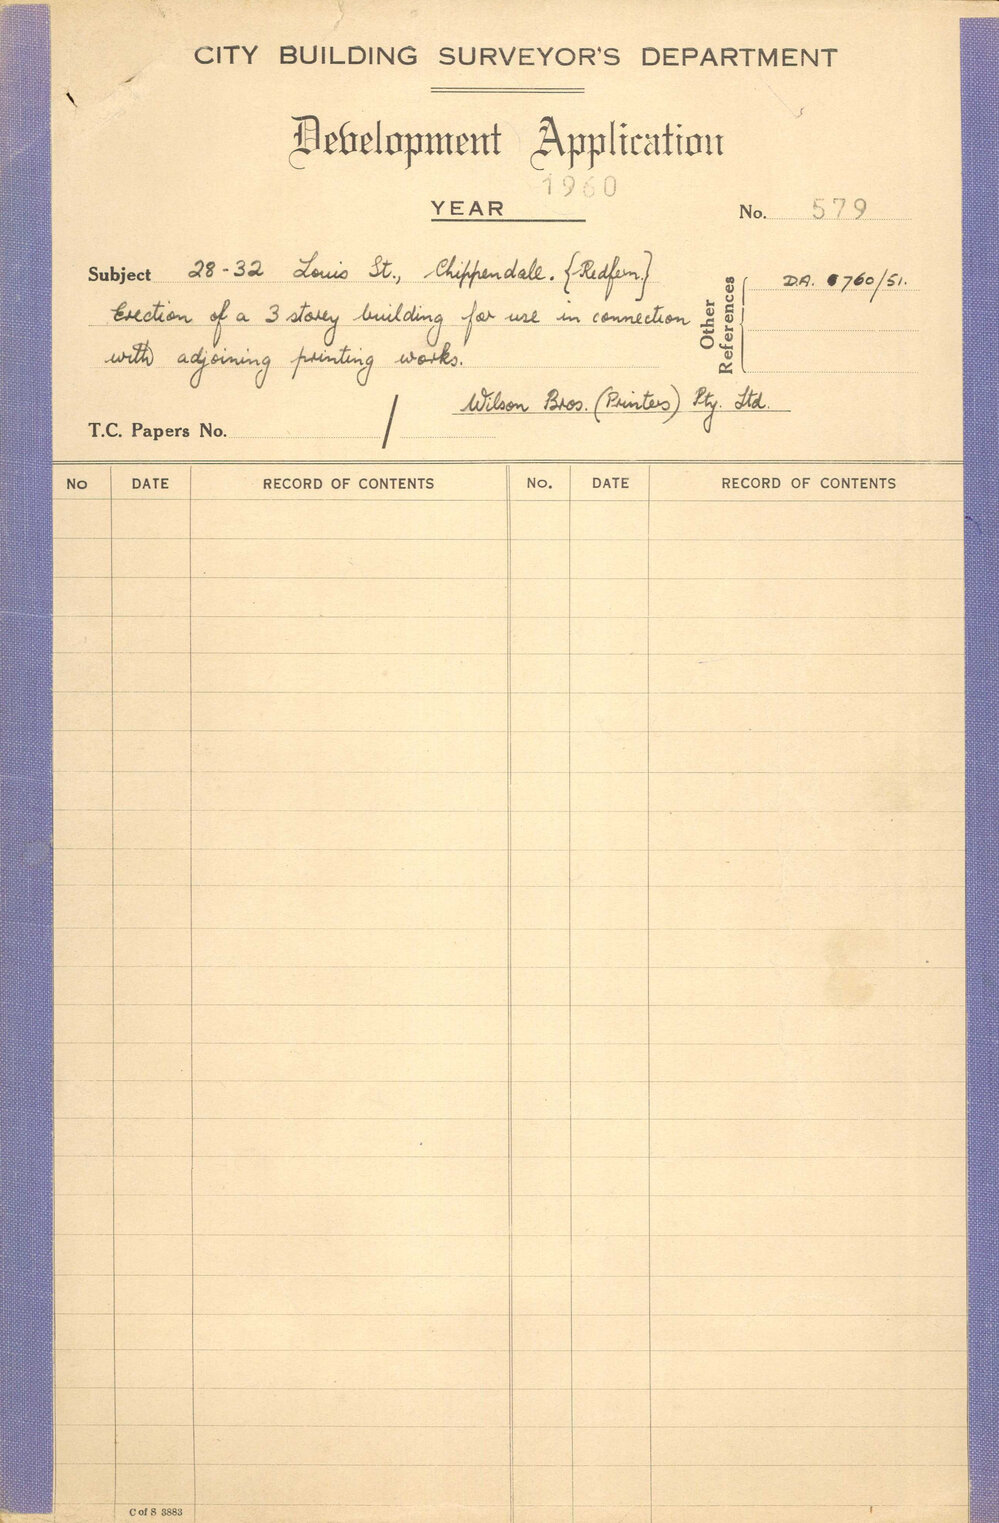 CITY BUILDING SURVEYOR'S DEPARTMENT
Development Application
1960
YEAR
No. 579
Subject 28-32 Louis St., Chippendale. {Redfern}
Erection of a 3 storey building for use in connection
with adjoining printing works.
Other References
D.A. 760/51.
Wilson Bros. (Printers) Pty. Ltd.
T.C. Papers No. /
No DATE RECORD OF CONTENTS No. DATE RECORD OF CONTENTS
C of S 3883